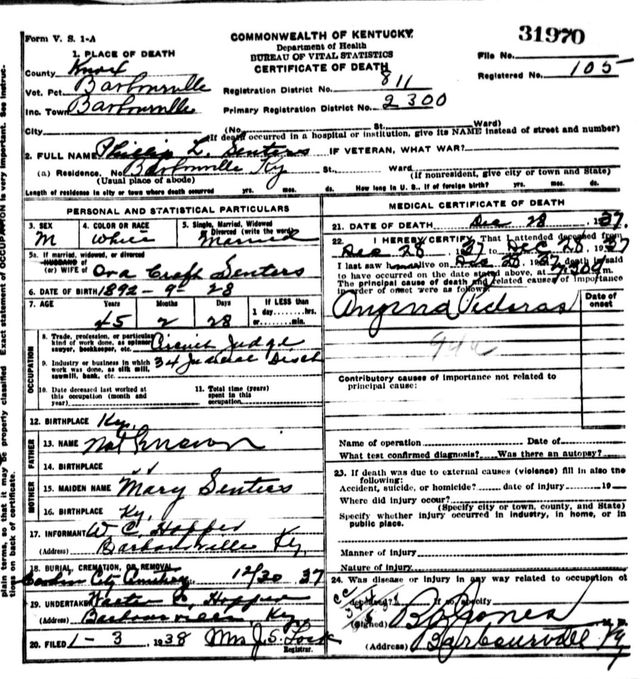 Form V. S. 1-A
COMMONWEALTH OF KENTUCKY
Department of Health
BUREAU OF VITAL STATISTICS
CERTIFICATE OF DEATH
31970
File No.
Registered No. 105
1. PLACE OF DEATH
County Knox
Vot. Pct. Barbourville
Inc. Town Barbourville
Registration District No. 811
Primary Registration District No. 2300
City (No. St. Ward)
(If death occurred in a hospital or institution, give its NAME instead of street and number)
2. FULL NAME Phillip L. Senters IF VETERAN, WHAT WAR?
(a) Residence, No. Barbourville Ky St. Ward
(Usual place of abode) (If nonresident, give city or town and State)
Length of residence in city or town where death occurred yrs. mos. ds. How long in U. S., if of foreign birth? yrs. mos. ds.
PERSONAL AND STATISTICAL PARTICULARS
3. SEX M
4. COLOR OR RACE White
5. Single, Married, Widowed or Divorced (write the word) Married
5a. If married, widowed, or divorced
HUSBAND of
(or) WIFE of Ova Craft Senters
6. DATE OF BIRTH 1892-9 28
7. AGE Years Months Days If LESS than
45 2 28 1 day, hrs.
or min.
OCCUPATION
8. Trade, profession, or particular kind of work done, as spinner, sawyer, bookkeeper, etc. Circuit Judge
9. Industry or business in which work was done, as silk mill, sawmill, bank, etc. 34 Judicial
10. Date deceased last worked at this occupation (month and year)
11. Total time (years) spent in this occupation
12. BIRTHPLACE Ky.
FATHER
13. NAME Not Known
14. BIRTHPLACE " "
MOTHER
15. MAIDEN NAME Mary Senters
16. BIRTHPLACE Ky.
17. INFORMANT W C Hopper
(Address) Barbourville Ky
18. BURIAL, CREMATION, OR REMOVAL
City Cemetery 12/30 37
19. UNDERTAKER Hopper
(Address) Barbourville Ky
20. FILED 1-3 1938 Mrs J. S. Lock
Registrar.
MEDICAL CERTIFICATE OF DEATH
21. DATE OF DEATH Dec 28 1937
22. I HEREBY CERTIFY That I attended deceased from
Dec 28 37 to Dec 28 1937
I last saw him alive on Dec 28 1937 death is said
to have occurred on the date stated above, at m.
The principal cause of death and related causes of importance
in order of onset were as follows:
Date of onset
Angina Pectoras
94a
Contributory causes of importance not related to principal cause:
Name of operation Date of
What test confirmed diagnosis? Was there an autopsy?
23. If death was due to external causes (violence) fill in also the following:
Accident, suicide, or homicide? date of injury 19
Where did injury occur?
(Specify city or town, county, and State)
Specify whether injury occurred in industry, in home, or in public place.
Manner of injury
Nature of injury
24. Was disease or injury in any way related to occupation of
deceased? If so, specify
(Signed) Jones M. D.
Barbourville Ky
plain terms, so that it may be properly classified. Exact statement of OCCUPATION is very important. See Instructions on back of certificate.